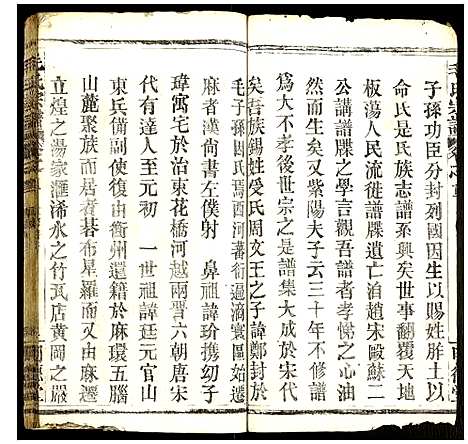 子孫功臣分封列國因生以賜姓胙土以
命氏是氏族之譜系興矣世事翻覆天地
板蕩人民流徙譜牒遺亡洎趙宋歐蘇二
公講譜牒之學言觀吾譜者孝悌之心油
然而生矣又紫陽夫子云三十年不修譜
爲大不孝後世宗之是譜集大
矣吾族錫姓受氏周文王之子諱鄭封於
毛子孫因氏焉西河蕃衍遍滴寰區始遷
麻者漢尚書左僕射 鼻祖諱玢携幼子
瑋寓宅於治東花橋河越兩唐宋
代有達人至元初 一世祖諱廷元官山
東兵備副使復由衢州還籍於麻環五腦
山麓聚族而居者碁布星羅而又散
立煌之湯家滙浠水之竹瓦店黄岡之嚴